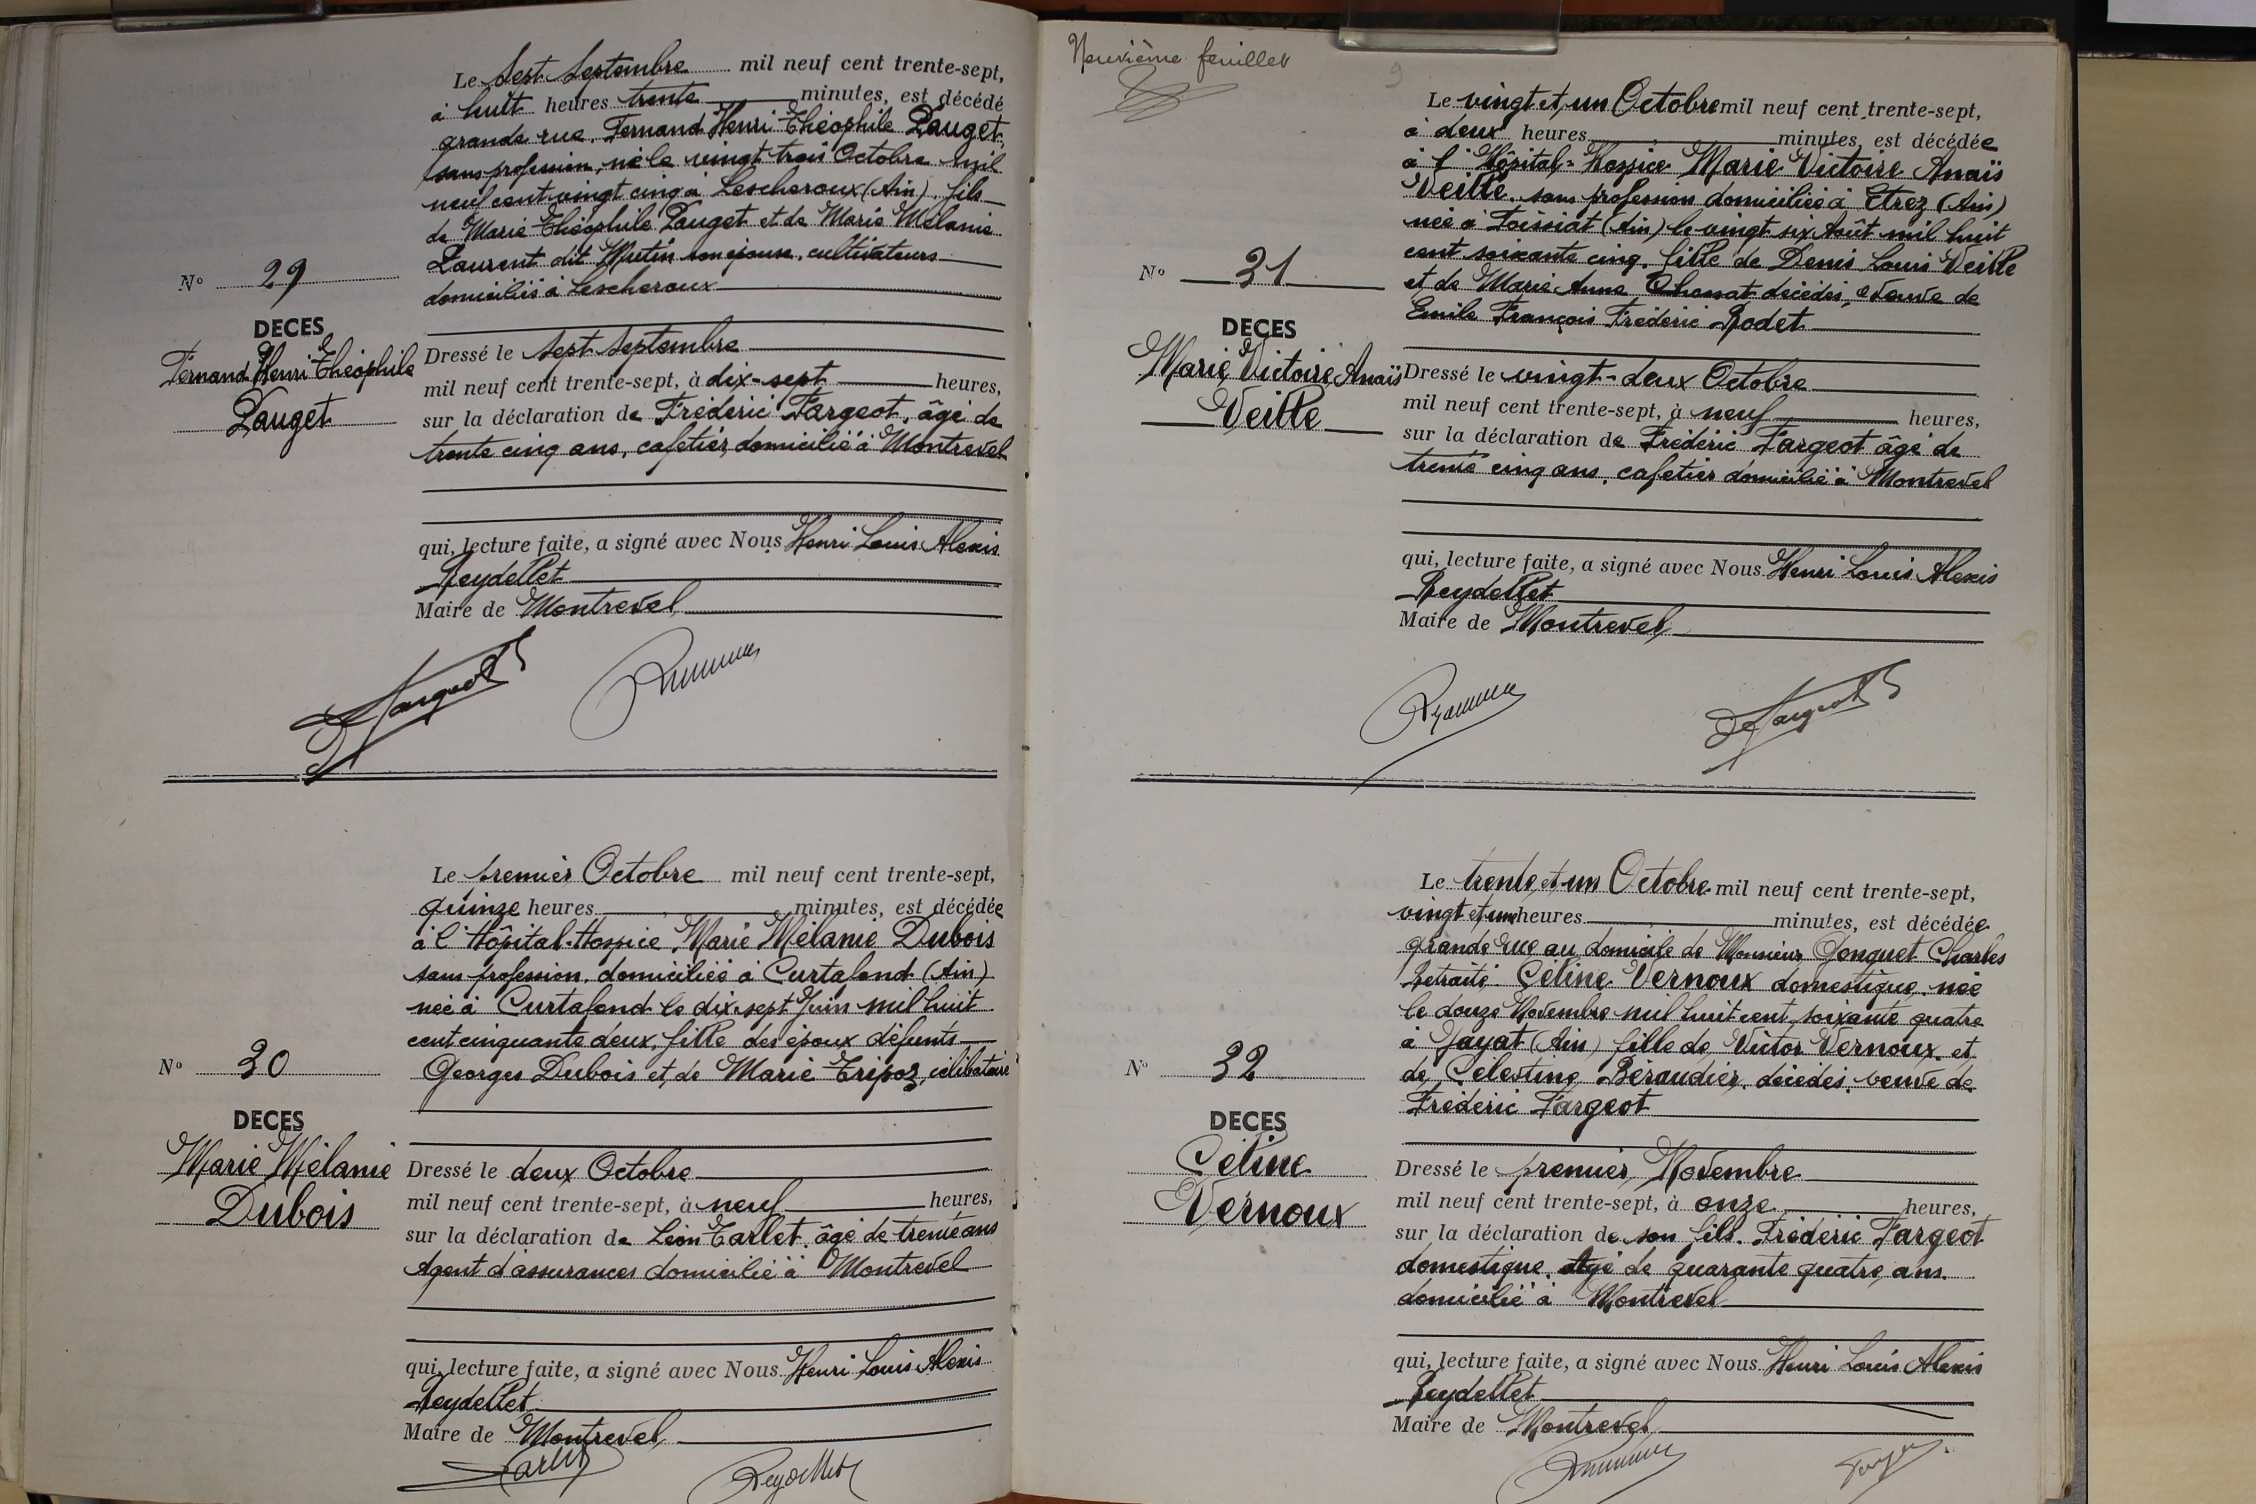 Le sept septembre mil neuf cent trente-sept,
à huit heures trente minutes, est décédé
grande rue, Fernand Henri Théophile Pauget,
sans profession, né le vingt trois Octobre mil
neuf cent vingt cinq à Lescheroux (Ain), fils
de Marie Théophile Pauget et de Marie Mélanie
Laurent dit Mutin son épouse, cultivateurs
domiciliés à Lescheroux
No 29
DECES
Fernand Henri Théophile
Pauget
Dressé le sept septembre
mil neuf cent trente-sept, à dix-sept heures,
sur la déclaration de Frédéric Fargeot, âgé de
trente cinq ans, cafetier, domicilié à Montrevel
qui, lecture faite, a signé avec Nous Henri Louis Alexis
Reydellet
Maire de Montrevel
Fargeot
Le premier Octobre mil neuf cent trente-sept,
quinze heures minutes, est décédée
à l'Hôpital-Hospice, Marie Mélanie Dubois
sans profession, domiciliée à Curtafond (Ain)
née à Curtafond le dix-sept Juin mil huit
cent cinquante deux, fille des époux défunts
Georges Dubois et de Marie Tripoz, célibataire
No 30
DECES
Marie Mélanie
Dubois
Dressé le deux Octobre
mil neuf cent trente-sept, à neuf heures,
sur la déclaration de Léon Tarlet, âgé de trente ans
Agent d'assurances domicilié à Montrevel
qui, lecture faite, a signé avec Nous Henri Louis Alexis
Reydellet
Maire de Montrevel
Tarlet Reydellet
Neuvième feuillet
9
Le vingt et un Octobre mil neuf cent trente-sept,
à deux heures minutes, est décédée
à l'Hôpital-Hospice Marie Victoire Anaïs
Veille, sans profession domiciliée à Etrez (Ain)
née à Foissiat (Ain) le vingt six Août mil huit
cent soixante cinq, fille de Denis Louis Veille
et de Marie Anne Chossat décédés, veuve de
Emile François Frédéric Rodet
No 31
DECES
Marie Victoire Anaïs
Veille
Dressé le vingt-deux Octobre
mil neuf cent trente-sept, à neuf heures,
sur la déclaration de Frédéric Fargeot âgé de
trente cinq ans, cafetier domicilié à Montrevel
qui, lecture faite, a signé avec Nous Henri Louis Alexis
Reydellet
Maire de Montrevel
Fargeot
Le trente et un Octobre mil neuf cent trente-sept,
vingt et une heures minutes, est décédée
grande rue au domicile de Monsieur Gonguet Charles
Retraité Céline Vernoux domestique, née
le douze Novembre mil huit cent soixante quatre
à Jayat (Ain) fille de Victor Vernoux et
de Célestine Béraudier, décédés, veuve de
Frédéric Fargeot
No 32
DECES
Céline
Vernoux
Dressé le premier Novembre
mil neuf cent trente-sept, à onze heures,
sur la déclaration de son fils Frédéric Fargeot
domestique, âgé de quarante quatre ans
domicilié à Montrevel
qui, lecture faite, a signé avec Nous Henri Louis Alexis
Reydellet
Maire de Montrevel